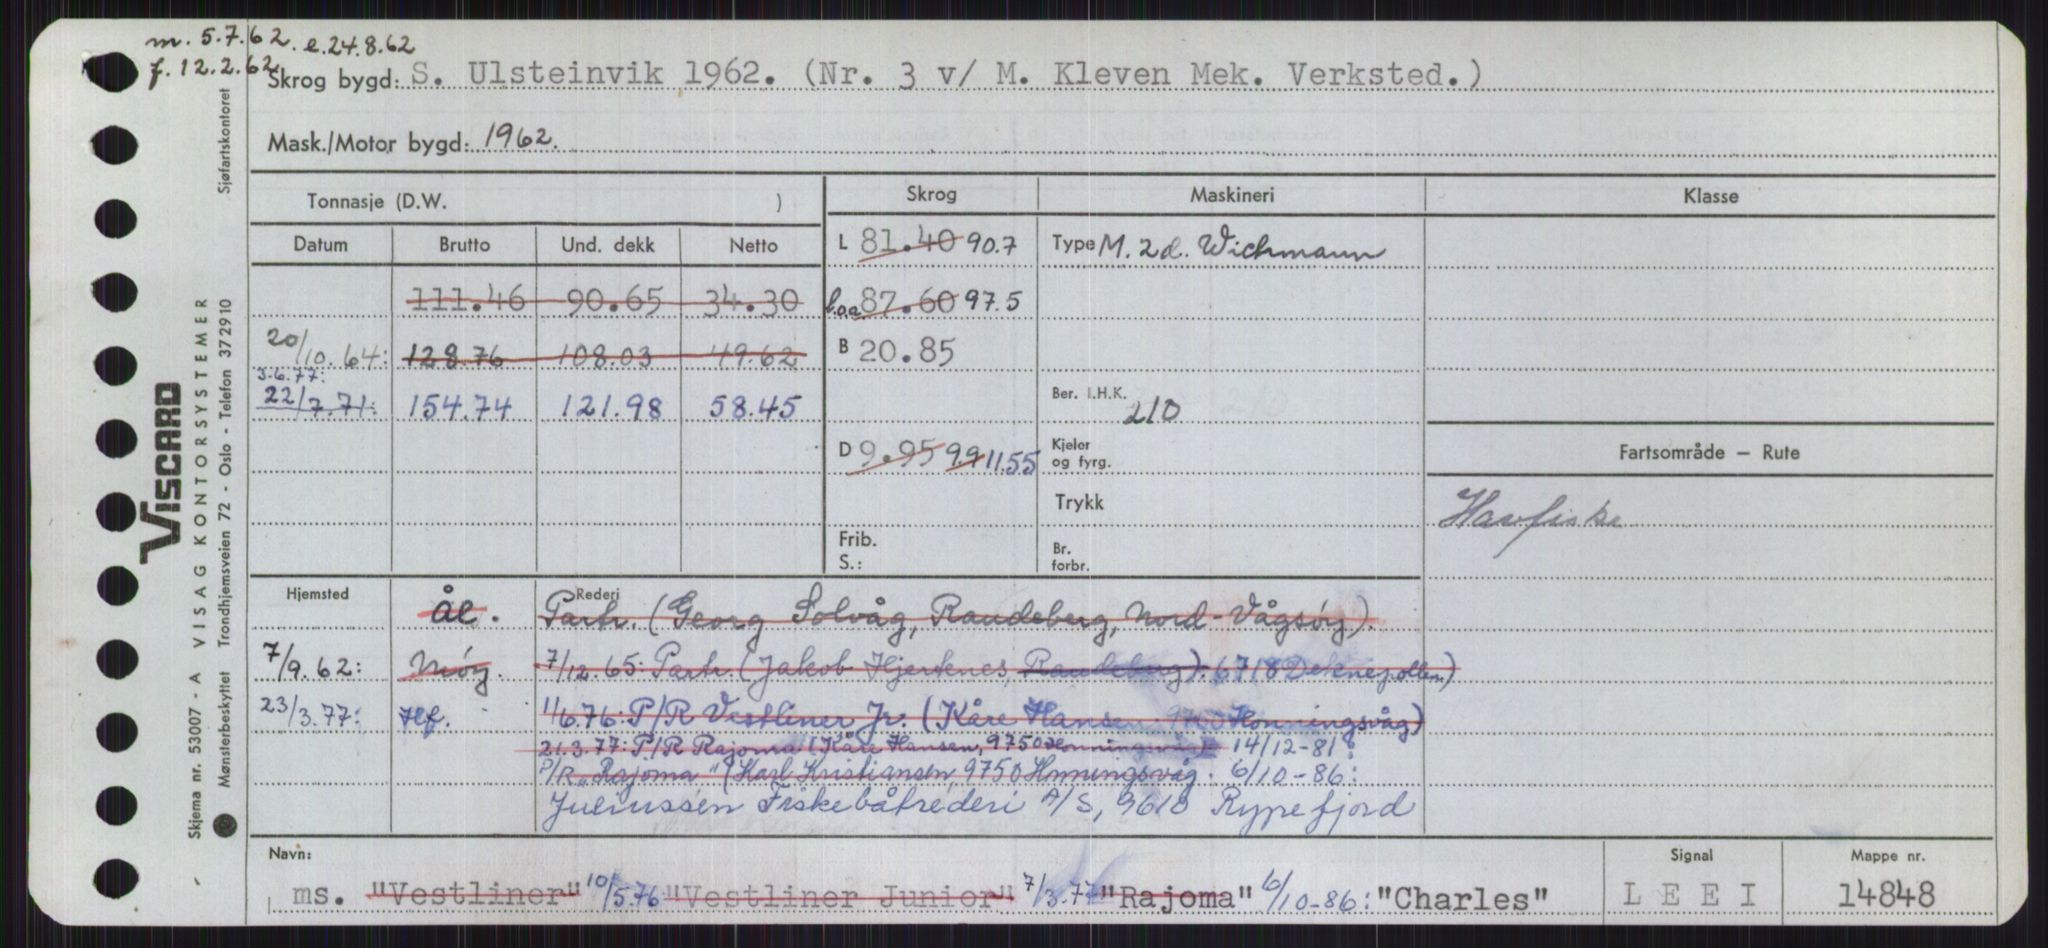 m. 5.7.62. e.24.8.62
f. 12.2.62
Skrog bygd: S. Ulsteinvik 1962. (Nr. 3 v/ M. Kleven Mek. Verksted.)
Mask./Motor bygd: 1962.
Tonnasje (D.W. )
Skrog Maskineri Klasse
Datum Brutto Und. dekk Netto
L 81.40 90.7 Type M. 2d. Wichmann
111.46 90.65 34.30
b.o.a 87.60 97.5
20/10.64: 128.76 108.03 49.62
B 20.85
3.6.77:
22/7.71: 154.74 121.98 58.45
Ber. I.H.K. 210
D 9.95 9.9 11.55 Kjeler
og fyrg.
Fartsområde — Rute
Trykk
Havfiske
Frib.
S.:
Br.
forbr.
Hjemsted Rederi
Ål. Partr. (Georg Solvåg, Raudeberg, Nord-Vågsøy).
7/9.62: Møy. 7/12.65: Partr. (Jakob Hjertenes, Raudeberg). 6718 Deknepollen)
23/3.77: Hf. 1/6.76: P/R Vestliner Jr. (Kåre Hansen, 9750 Honningsvåg)
21.3.77: P/R Rajoma (Kåre Hansen, 9750 Honningsvåg) 14/12-81:
P/R "Rajoma" (Karl Kristiansen, 9750 Honningsvåg. 6/10-86:
Juliussen Fiskebåtrederi A/S, 9610 Rypefjord
Navn: Signal Mappe nr.
ms. "Vestliner" 10/5.76 "Vestliner Junior" 7/3.77 "Rajoma" 6/10-86: "Charles" LEEI 14848
Skjema nr. 53007 - A VISAG KONTORSYSTEMER
VISCARD
Mønsterbeskyttet Trondhjemsveien 72 - Oslo - Telefon 372910
Sjøfartskontoret